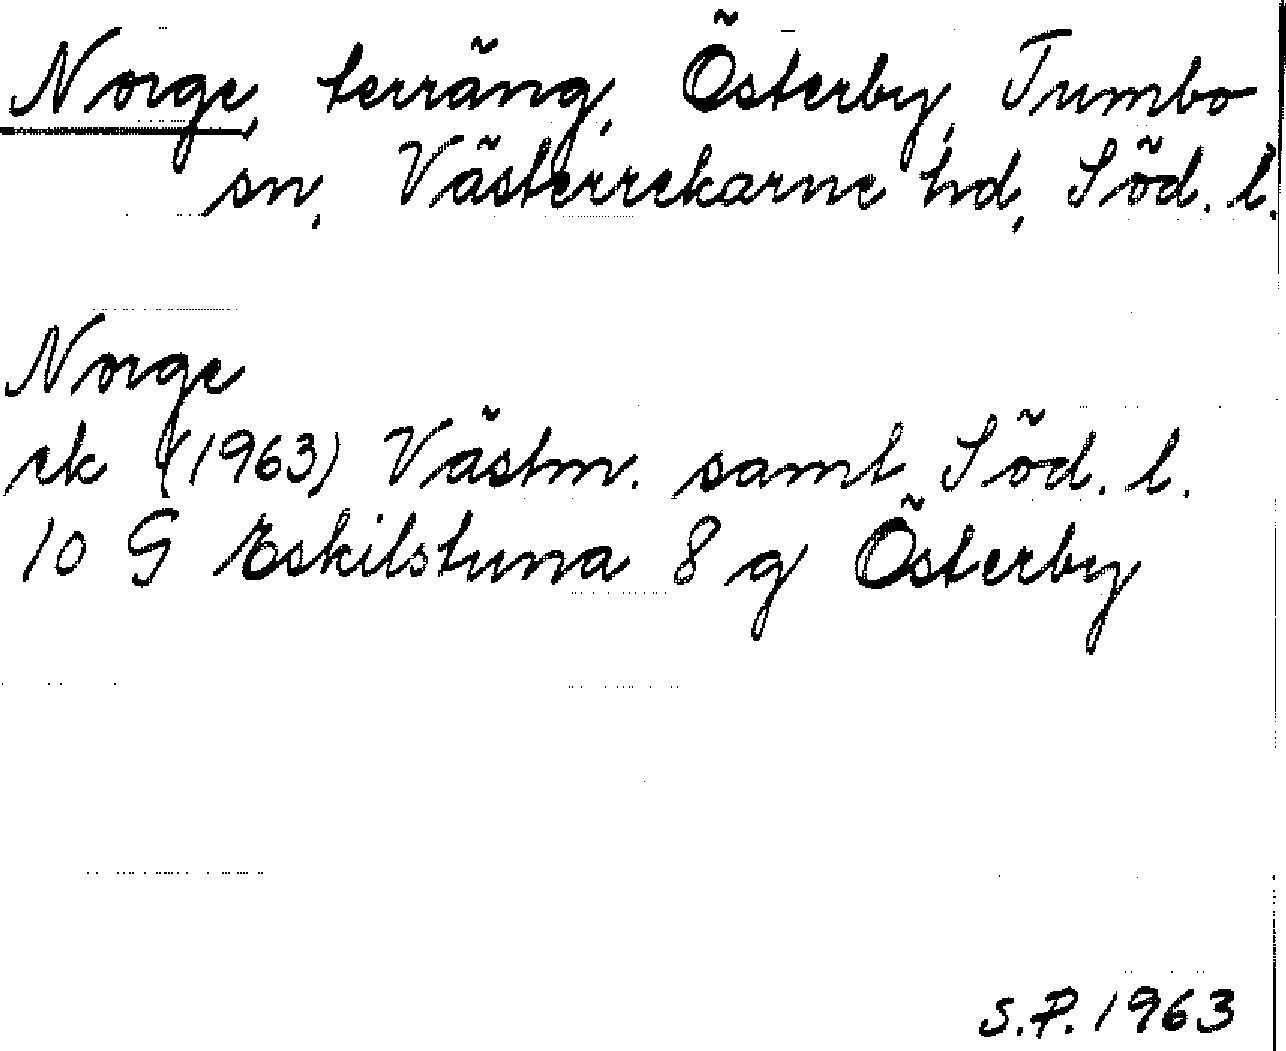 Norge, terräng, Österby, Tumbo
sn, Västerrekarne hd, Söd. l.
Norge
ek (1963) Västm. samt Söd. l.
10 G Eskilstuna 8 g Österby
S.P. 1963